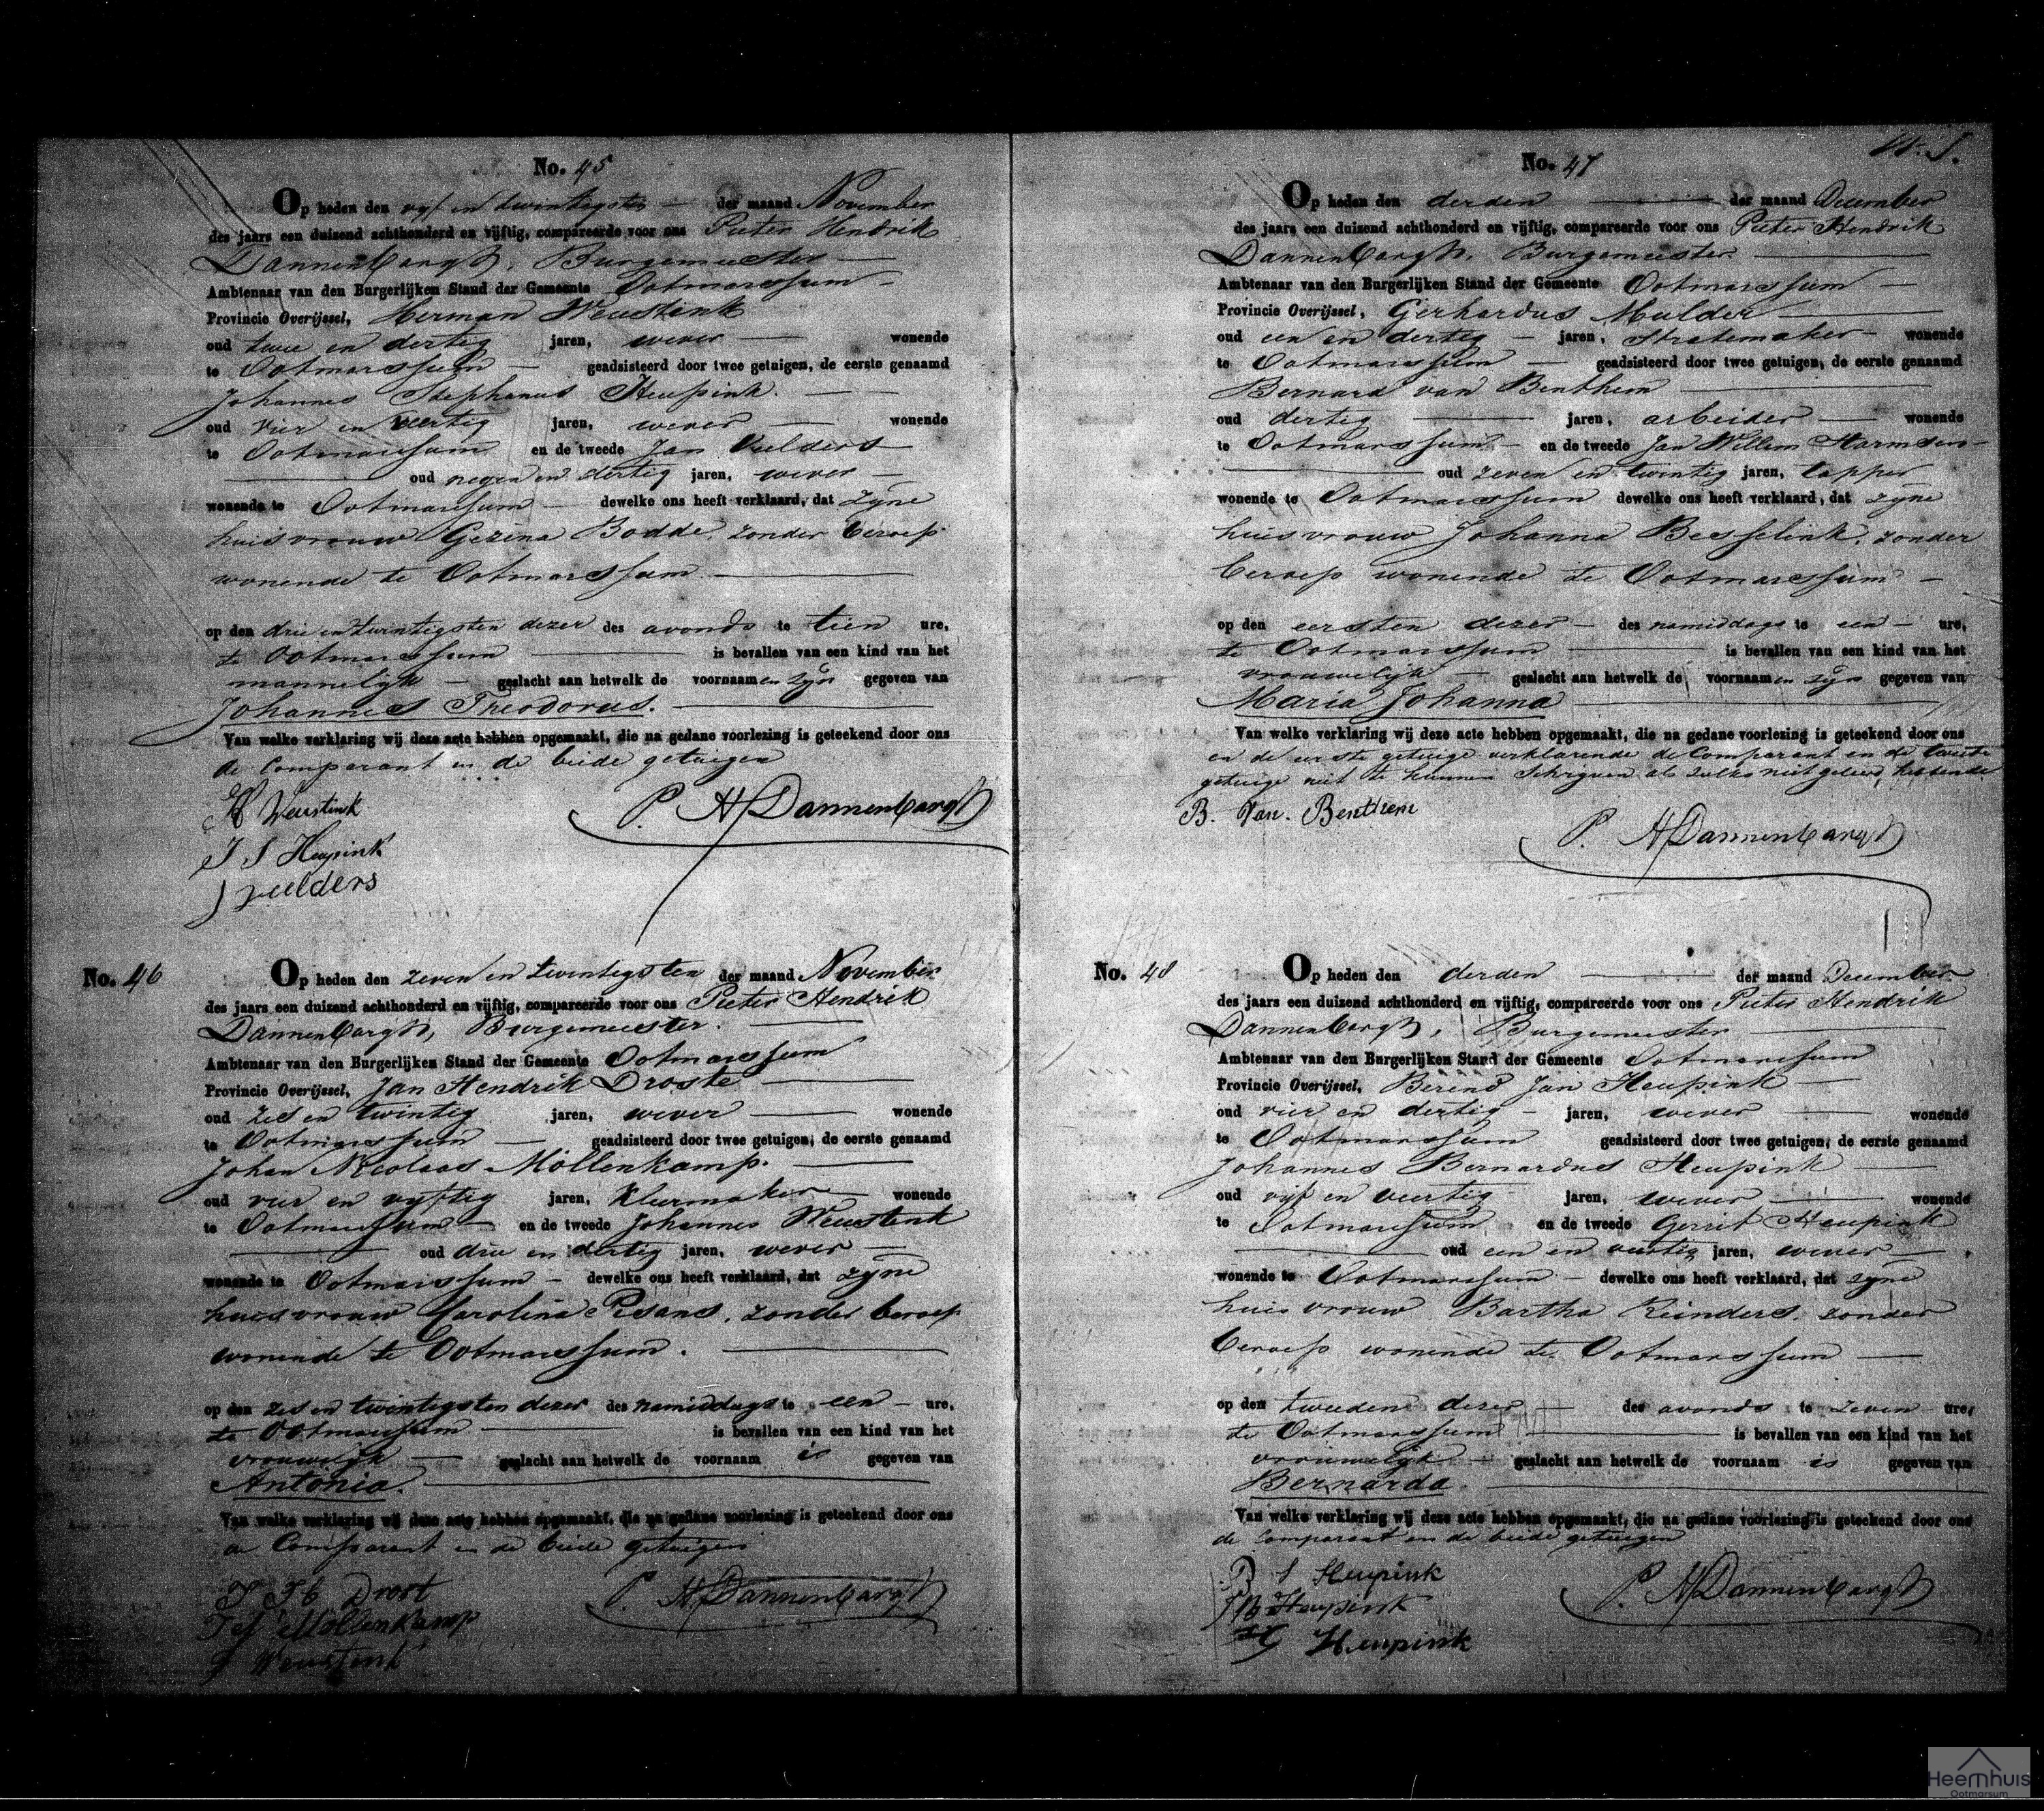 No. 45
Op heden den vyf en twintigsten der maand November
des jaars een duizend achthonderd en vijftig, compareerde voor ons Pieter Hendrik
Dannenbargh, Burgemeester
Ambtenaar van den Burgerlijken Stand der Gemeente Ootmarssum
Provincie Overijssel, Herman Weustink
oud twee en dertig jaren, wever wonende
te Ootmarssum geadsisteerd door twee getuigen, de eerste genaamd
Johannes Stephanus Heupink.
oud vier en veertig jaren, wever wonende
te Ootmarssum en de tweede Jan Veelders
oud negen en dertig jaren, wever
wonende te Ootmarssum dewelke ons heeft verklaard, dat zyne
huisvrouw Gezina Bodde, zonder beroep
wonende te Ootmarssum
op den drie en twintigsten dezer des avonds te tien ure,
te Ootmarssum is bevallen van een kind van het
mannelyk geslacht aan hetwelk de voornaamen zyn gegeven van
Johannes Theodorus.
Van welke verklaring wij deze acte hebben opgemaakt, die na gedane voorlezing is geteekend door ons
de Comparant en de beide getuigen
H Weustink
P. H Dannenbargh
J S Heupink
J veelders
No. 46
Op heden den zeven en twintigsten der maand November
des jaars een duizend achthonderd en vijftig, compareerde voor ons Pieter Hendrik
Dannenbargh, Burgemeester.
Ambtenaar van den Burgerlijken Stand der Gemeente Ootmarssum
Provincie Overijssel, Jan Hendrik Droste
oud zes en twintig jaren, wever wonende
te Ootmarssum geadsisteerd door twee getuigen, de eerste genaamd
Johan Nicolaas Möllenkamp.
oud vier en vyftig jaren, Kleermaker wonende
te Ootmarssum en de tweede Johannes Weustink
oud drie en dertig jaren, wever
wonende te Ootmarssum dewelke ons heeft verklaard, dat zyne
huisvrouw Carolina zonder beroep
wonende te Ootmarssum.
op den zes en twintigsten dezer des namiddags te een ure,
te Ootmarssum is bevallen van een kind van het
vrouwelijk geslacht aan hetwelk de voornaam is gegeven van
Antonia.
Van welke verklaring wij deze acte hebben opgemaakt, die na gedane voorlezing is geteekend door ons
de Comparant en de beide getuigen
J H Drost
P. H Dannenbargh
Möllenkamp
J Weustink
No. 47
Op heden den derden der maand December
des jaars een duizend achthonderd en vijftig, compareerde voor ons Pieter Hendrik
Dannenbargh, Burgemeester.
Ambtenaar van den Burgerlijken Stand der Gemeente Ootmarssum
Provincie Overijssel, Gerhardus Mulder
oud een en dertig jaren, Stratemaker wonende
te Ootmarssum geadsisteerd door twee getuigen, de eerste genaamd
Bernard van Benthem
oud dertig jaren, arbeider wonende
te Ootmarssum en de tweede Jan Willem Harmsen
oud zeven en twintig jaren, tapper
wonende te Ootmarssum dewelke ons heeft verklaard, dat zyne
huisvrouw Johanna Besselink, zonder
beroep wonende te Ootmarssum
op den eersten dezer des namiddags te een ure,
te Ootmarssum is bevallen van een kind van het
vrouwelijk geslacht aan hetwelk de voornaamen zyn gegeven van
Maria Johanna
Van welke verklaring wij deze acte hebben opgemaakt, die na gedane voorlezing is geteekend door ons
en de eerste getuige verklarende de Comparant en de tweede
getuige niet te kunnen Schryven als zulks niet geleerd hebbende
B. Van. Benthem
P. H Dannenbargh
No. 48
Op heden den derden der maand December
des jaars een duizend achthonderd en vijftig, compareerde voor ons Pieter Hendrik
Dannenbargh, Burgemeester
Ambtenaar van den Burgerlijken Stand der Gemeente Ootmarssum
Provincie Overijssel, Berend Jan Heupink
oud vier en dertig jaren, wever wonende
te Ootmarssum geadsisteerd door twee getuigen, de eerste genaamd
Johannes Bernardus Heupink
oud vijf en veertig jaren, wever wonende
te Ootmarssum en de tweede Gerrit Heupink
oud een en veertig jaren, wever
wonende te Ootmarssum dewelke ons heeft verklaard, dat zyne
huisvrouw Bartha Reinders, zonder
beroep wonende te Ootmarssum
op den tweeden dezer des avonds te zeven ure,
te Ootmarssum is bevallen van een kind van het
vrouwelijk geslacht aan hetwelk de voornaam is gegeven van
Bernarda.
Van welke verklaring wij deze acte hebben opgemaakt, die na gedane voorlezing is geteekend door ons
de Comparant en de beide getuigen
B J Heupink
P. H Dannenbargh
J B Heupink
G Heupink
Heemhuis
Ootmarsum